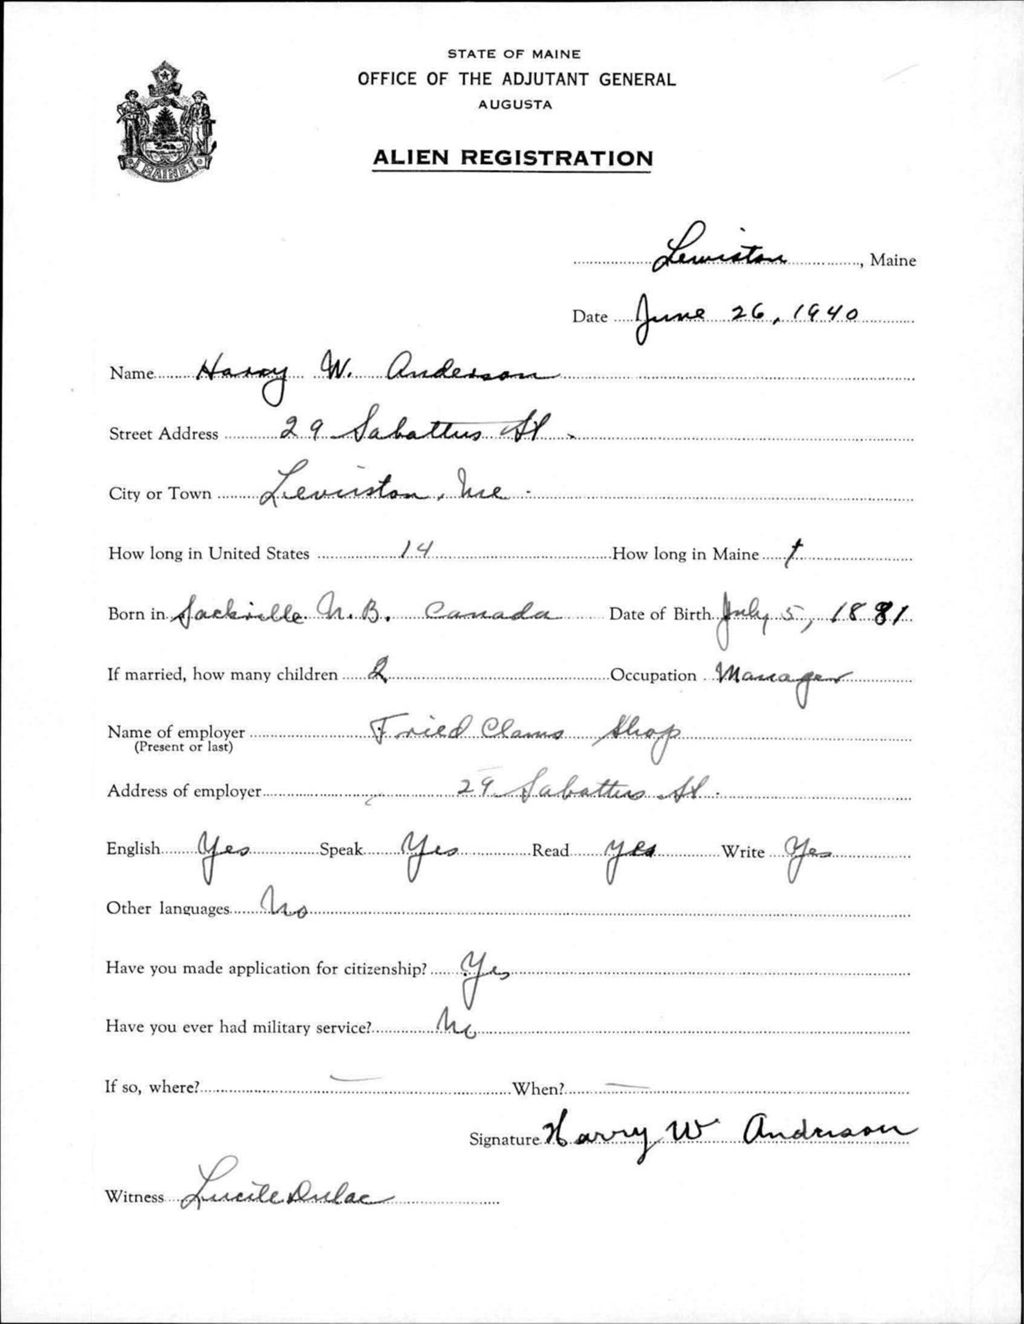 STATE OF MAINE
OFFICE OF THE ADJUTANT GENERAL
AUGUSTA
ALIEN REGISTRATION
MAINE
Lewiston, Maine
Date June 26, 1940
Name Harry W. Anderson
Street Address 29 Sabattus St.
City or Town Lewiston, Me.
How long in United States 14 How long in Maine
Born in Sackville N.B. Canada Date of Birth July 5, 1881
If married, how many children 2 Occupation Manager
Name of employer Fried Clams Shop
(Present or last)
Address of employer 29 Sabattus St.
English Yes Speak Yes Read yes Write Yes
Other languages No
Have you made application for citizenship? Yes
Have you ever had military service? No
If so, where? — When? —
Signature Harry W Anderson
Witness Lucile Dulac